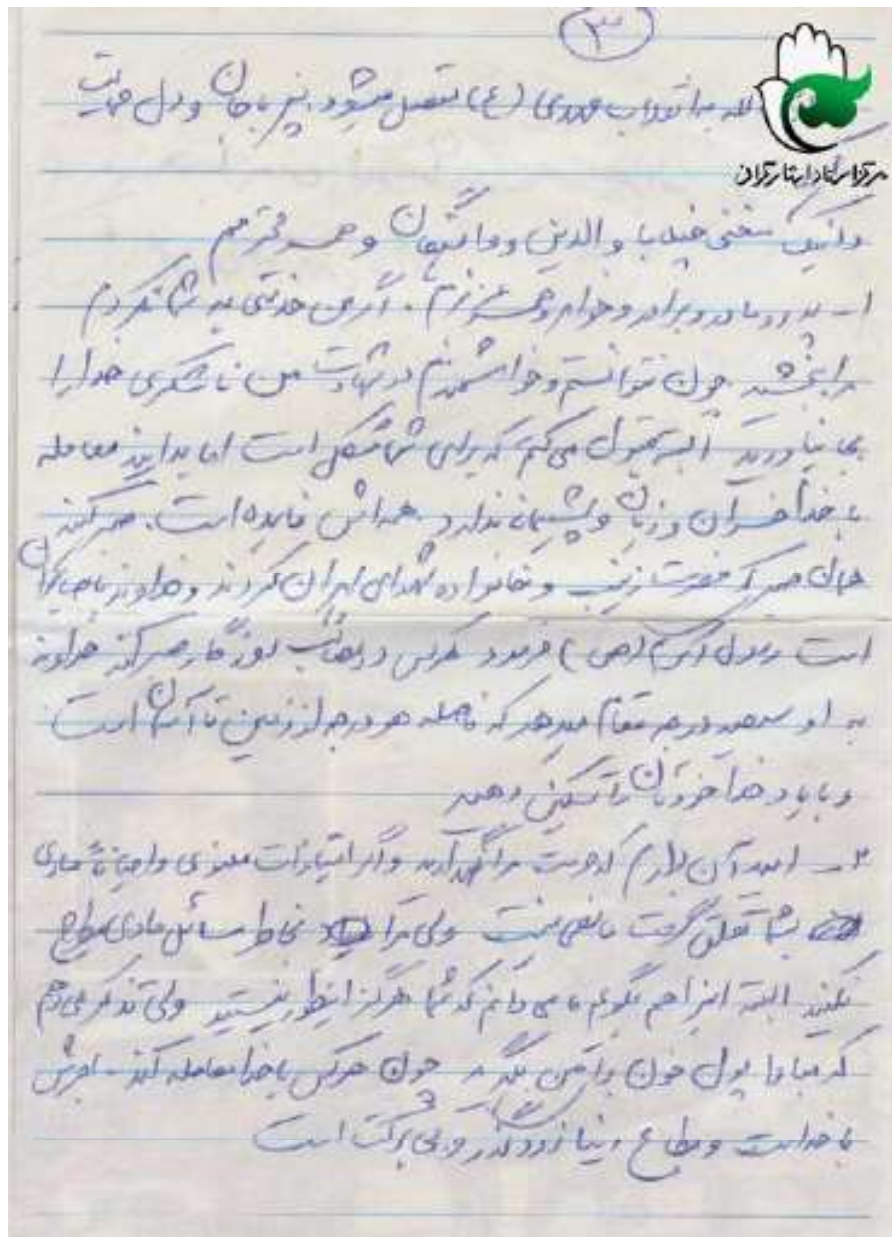 ۳
که به انقلاب مهدی (ع) متصل میشود. نیز با جان و دل حمایت
مرکز اسناد ایثارگران
و اینک سخنی چند با والدین و و همسر محترمم
۱- پدر و مادر و برادر و خواهر و همسر عزیزم. اگر من خدمتی به شما نکردم
مرا ببخشید چون نتوانستم و خواهشمندم در شهادت من ناشکری خدا را
بجا نیاورید البته قبول می کنم که برای شما مشکل است اما بدانید معامله
با خدا خسران و زیان و پشیمانی ندارد همه اش فایده است. صبر کنید
همان صبری که حضرت زینب و خانواده شهدای ایران کردند و خداوند با صابران
است رسول اکرم (ص) فرمود هر کس در مصائب روزگار صبر کند خداوند
به او سیصد درجه مقام میدهد که فاصله هر درجه از زمین تا آسمان است
و با یاد خدا خودتان را تسکین دهید
۲- امید آن دارم که حرمت مرا نگهدارید و اگر امتیازات معنوی و احیاناً مادی
بشما تعلق گرفت مانعی نیست ولی مرا بخاطر مسائل مادی مطرح
نکنید البته این را هم بگویم می دانم که شما هرگز اینطور نیستید ولی تذکر می دهم
که مبادا پول خون برای من بگیرید چون هر کس با خدا معامله کند. اجرش
با خداست و متاع دنیا زودگذر و بی برکت است